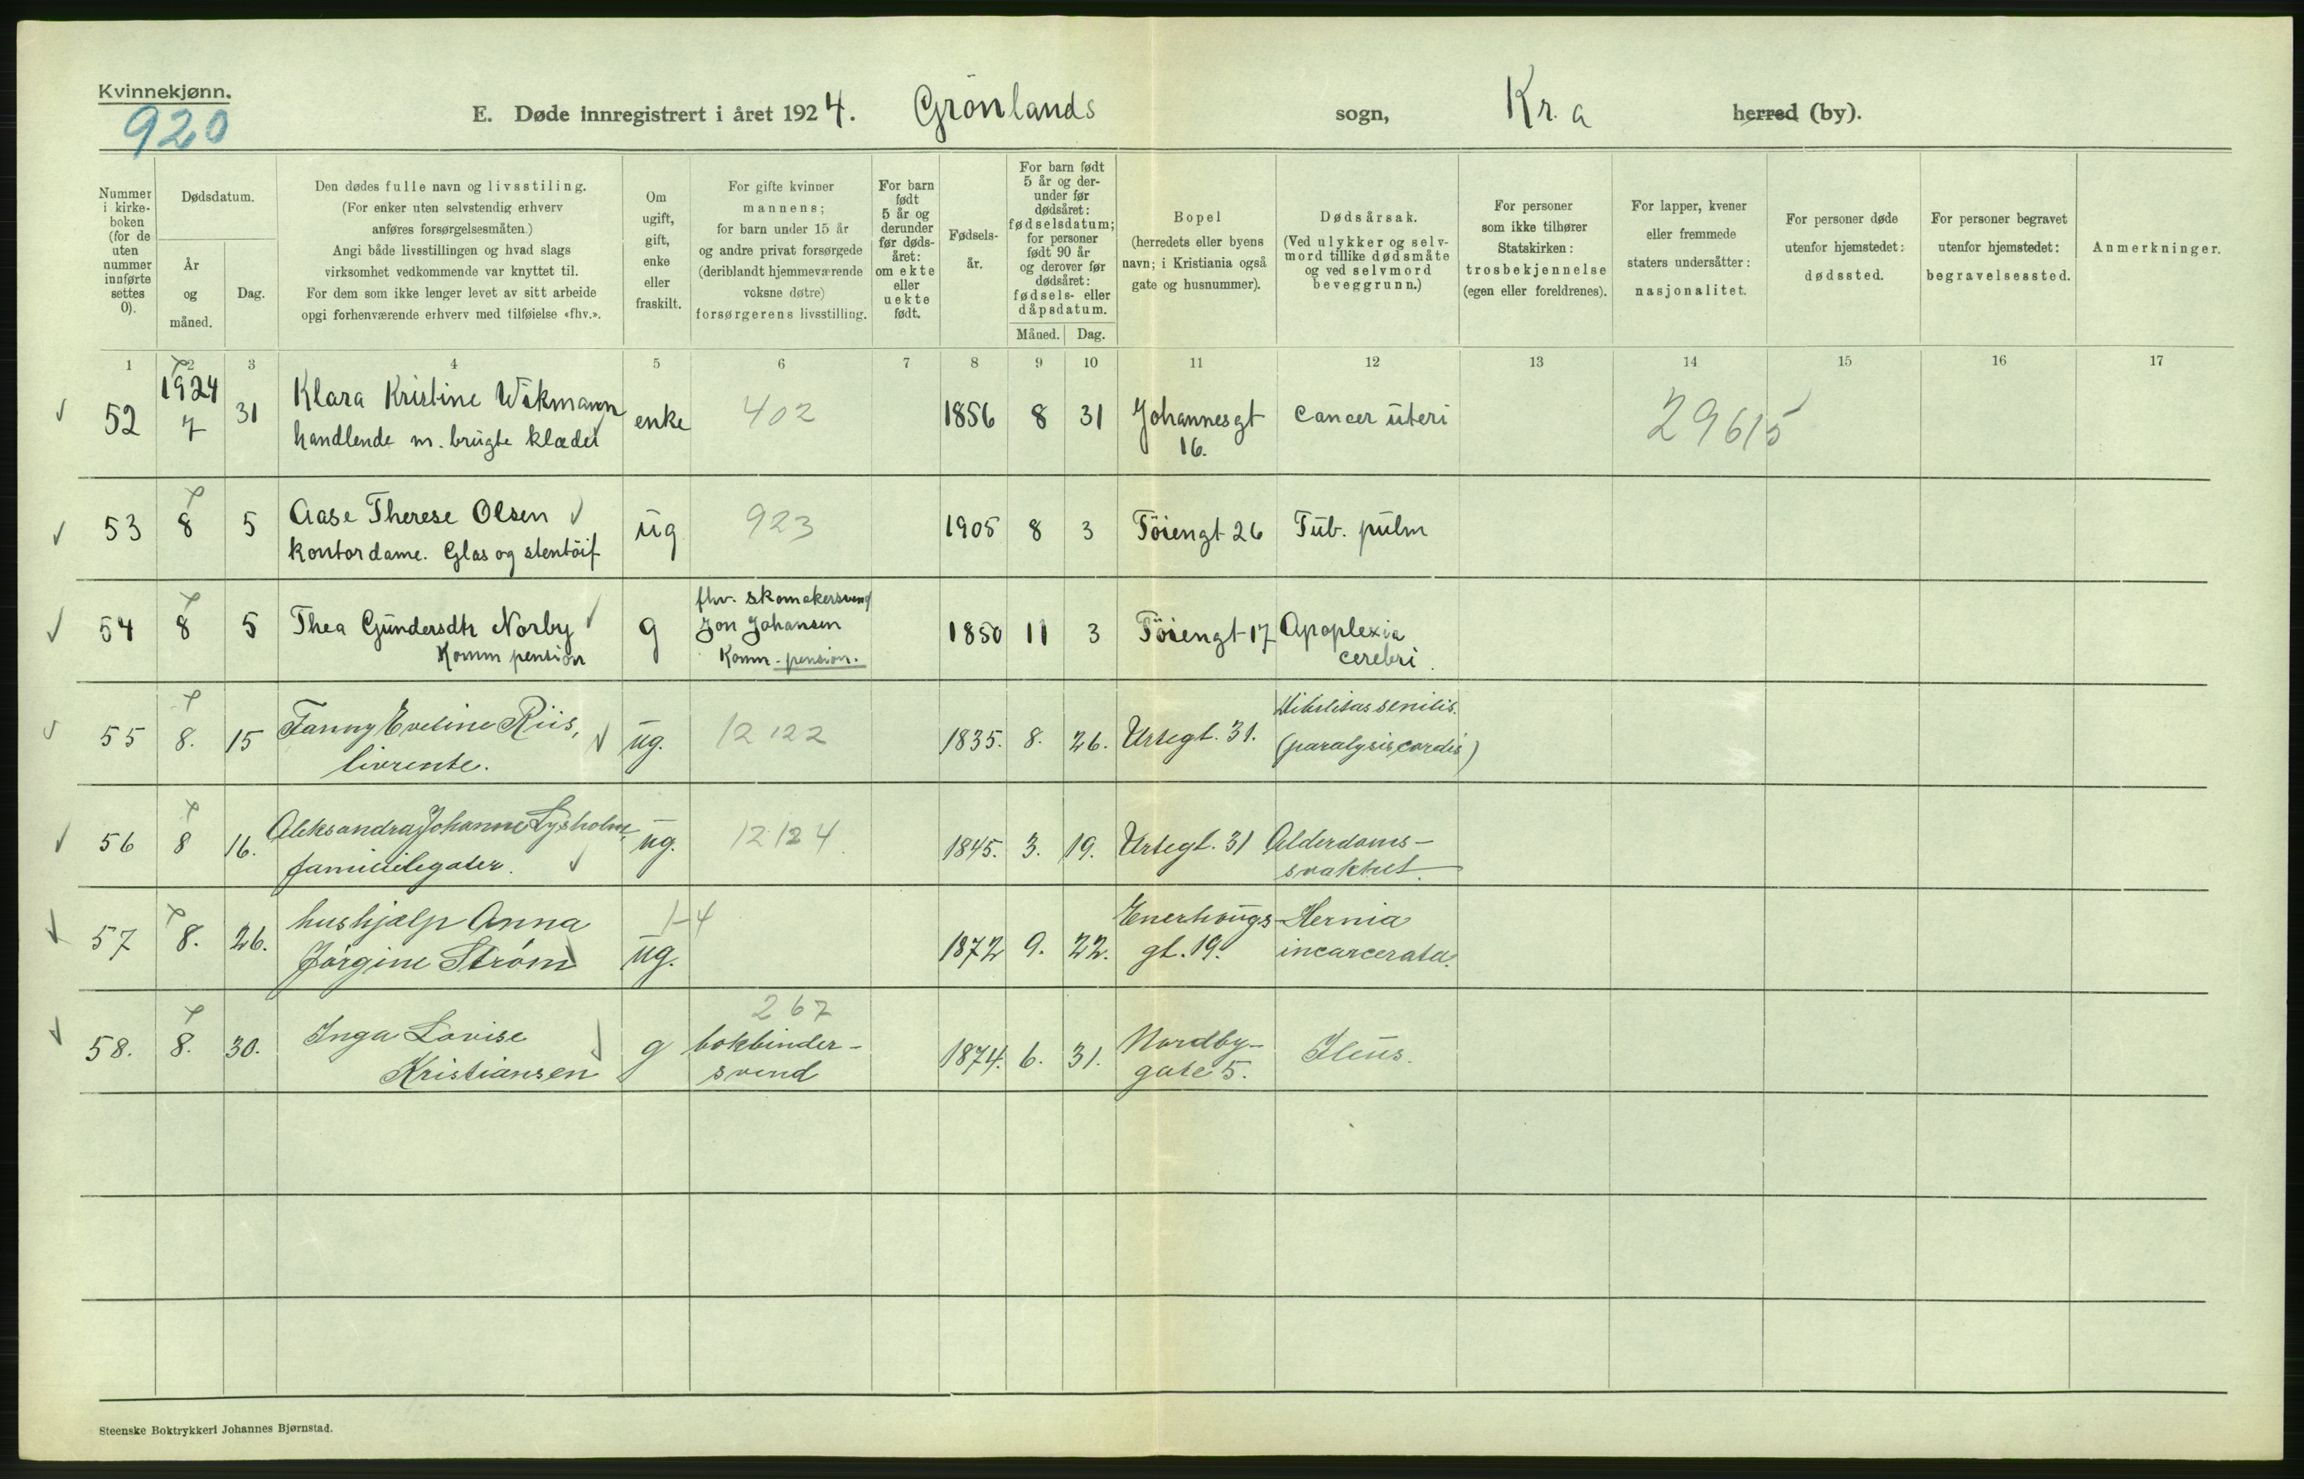 Kvinnekjønn.
920
E. Døde innregistrert i året 1924. Grönlands sogn, Kr.a herred (by).
Nummer i kirke- boken (for de uten nummer innførte settes 0).
Dødsdatum.
År og måned.
Dag.
Den dødes fulle navn og livsstiling.
(For enker uten selvstendig erhverv
anføres forsørgelsesmåten.)
Angi både livsstillingen og hvad slags
virksomhet vedkommende var knyttet til.
For dem som ikke lenger levet av sitt arbeide
opgi forhenværende erhverv med tilføielse «fhv.».
Om
ugift,
gift,
enke
eller
fraskilt.
For gifte kvinner
mannens;
for barn under 15 år
og andre privat forsørgede
(deriblandt hjemmeværende
voksne døtre)
forsørgerens livsstilling.
For barn
født
5 år og
derunder
før døds-
året:
om ekte
eller
uekte
født.
Fødsels-
år.
For barn født
5 år og der-
under før
dødsåret:
fødselsdatum;
for personer
født 90 år
og derover før
dødsåret:
fødsels- eller
dåpsdatum.
Måned. Dag.
Bopel
(herredets eller byens
navn; i Kristiania også
gate og husnummer).
Dødsårsak.
(Ved ulykker og selv-
mord tillike dødsmåte
og ved selvmord
beveggrunn.)
For personer
som ikke tilhører
Statskirken:
trosbekjennelse
(egen eller foreldrenes).
For lapper, kvener
eller fremmede
staters undersåtter:
nasjonalitet.
For personer døde
utenfor hjemstedet:
dødssted.
For personer begravet
utenfor hjemstedet:
begravelsessted.
Anmerkninger.
1 2 3 4 5 6 7 8 9 10 11 12 13 14 15 16 17
52 1924 7 31 Klara Kristine Wikmann
handlende m. brugte klæder enke 402 1856 8 31 Johannesgt
16. Cancer uteri 29615
53 8 5 Aase Therese Olsen
kontordame. Glas og stentöif ug 923 1905 8 3 Töiengt 26 Tub. pulm
54 8 5 Thea Gundersdtr Norby
Komm pension g fhv. skomakersvend
Jon Johansen
Komm. pension. 1850 11 3 Töiengt 17 Apoplexia
cerebri.
55 8. 15 Fanny Eveline Riis,
livrente. ug. 12 122 1835. 8. 26. Urtegt. 31. Debilitas senilis.
(paralysis cordis)
56 8 16. Aleksandra Johanne Lysholm,
familielegater. ug. 12 124 1845. 3. 19. Urtegt. 31 Alderdoms-
svakhet.
57 8. 26. hushjælp Anna
Jørgine Strøm ug. 1-4 1872 9. 22. Enerhougs-
gt. 19. Hernia
incarcerata.
58. 8. 30. Inga Lovise
Kristiansen g 267
bokbinder-
svend 1874. 6. 31. Nordby-
gate 5. Ileus.
Steenske Boktrykkeri Johannes Bjørnstad.